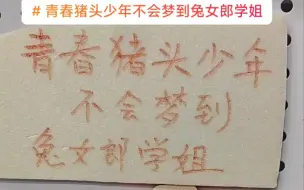 # 青春猪头少年不会梦到兔女郎学姐
青春猪头少年
不会梦到
兔女郎学姐